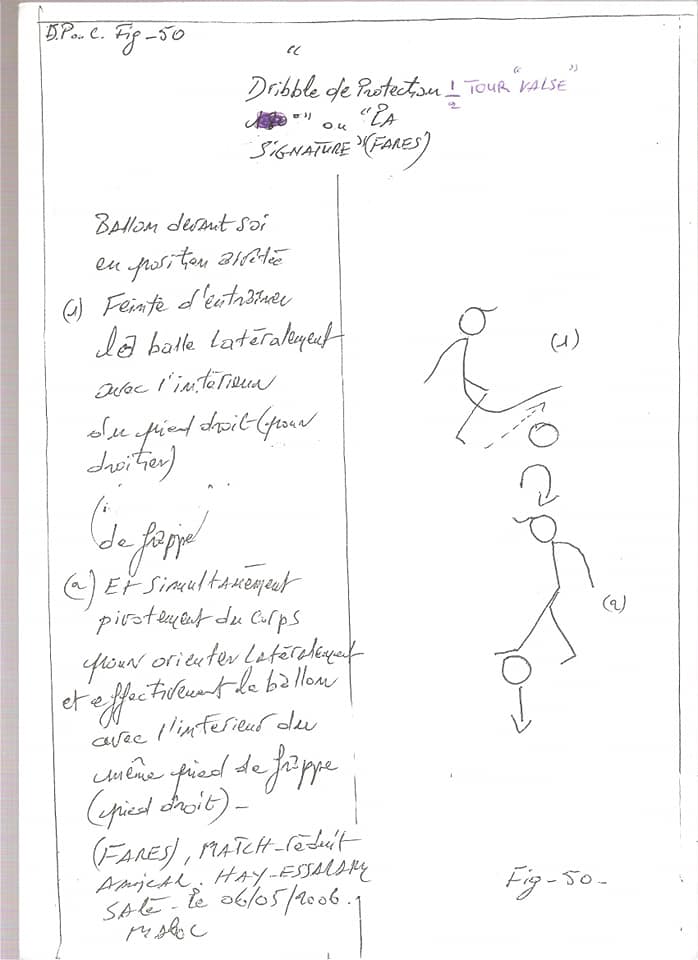 D.P... C. Fig-50
"
Dribble de Protection 1/2 TOUR "VALSE"
"" ou "LA
SIGNATURE" (FARES)
BAllon devant soi
en position arrêtée
(1) Feinte d'entrainer
la balle Latéralement
avec l'intérieur
du pied droit (pour
droitier)
(1)
de frappe
(2) Et Simultanément
pivotement du corps
pour orienter Latéralement
et effectivement le ballon
avec l'intérieur du
même pied de frappe
(pied droit) -
(FARES), MATCH-réduit
Amical. HAY-ESSALAM
SALÉ - le 06/05/2006.
Maroc
(2)
Fig-50-